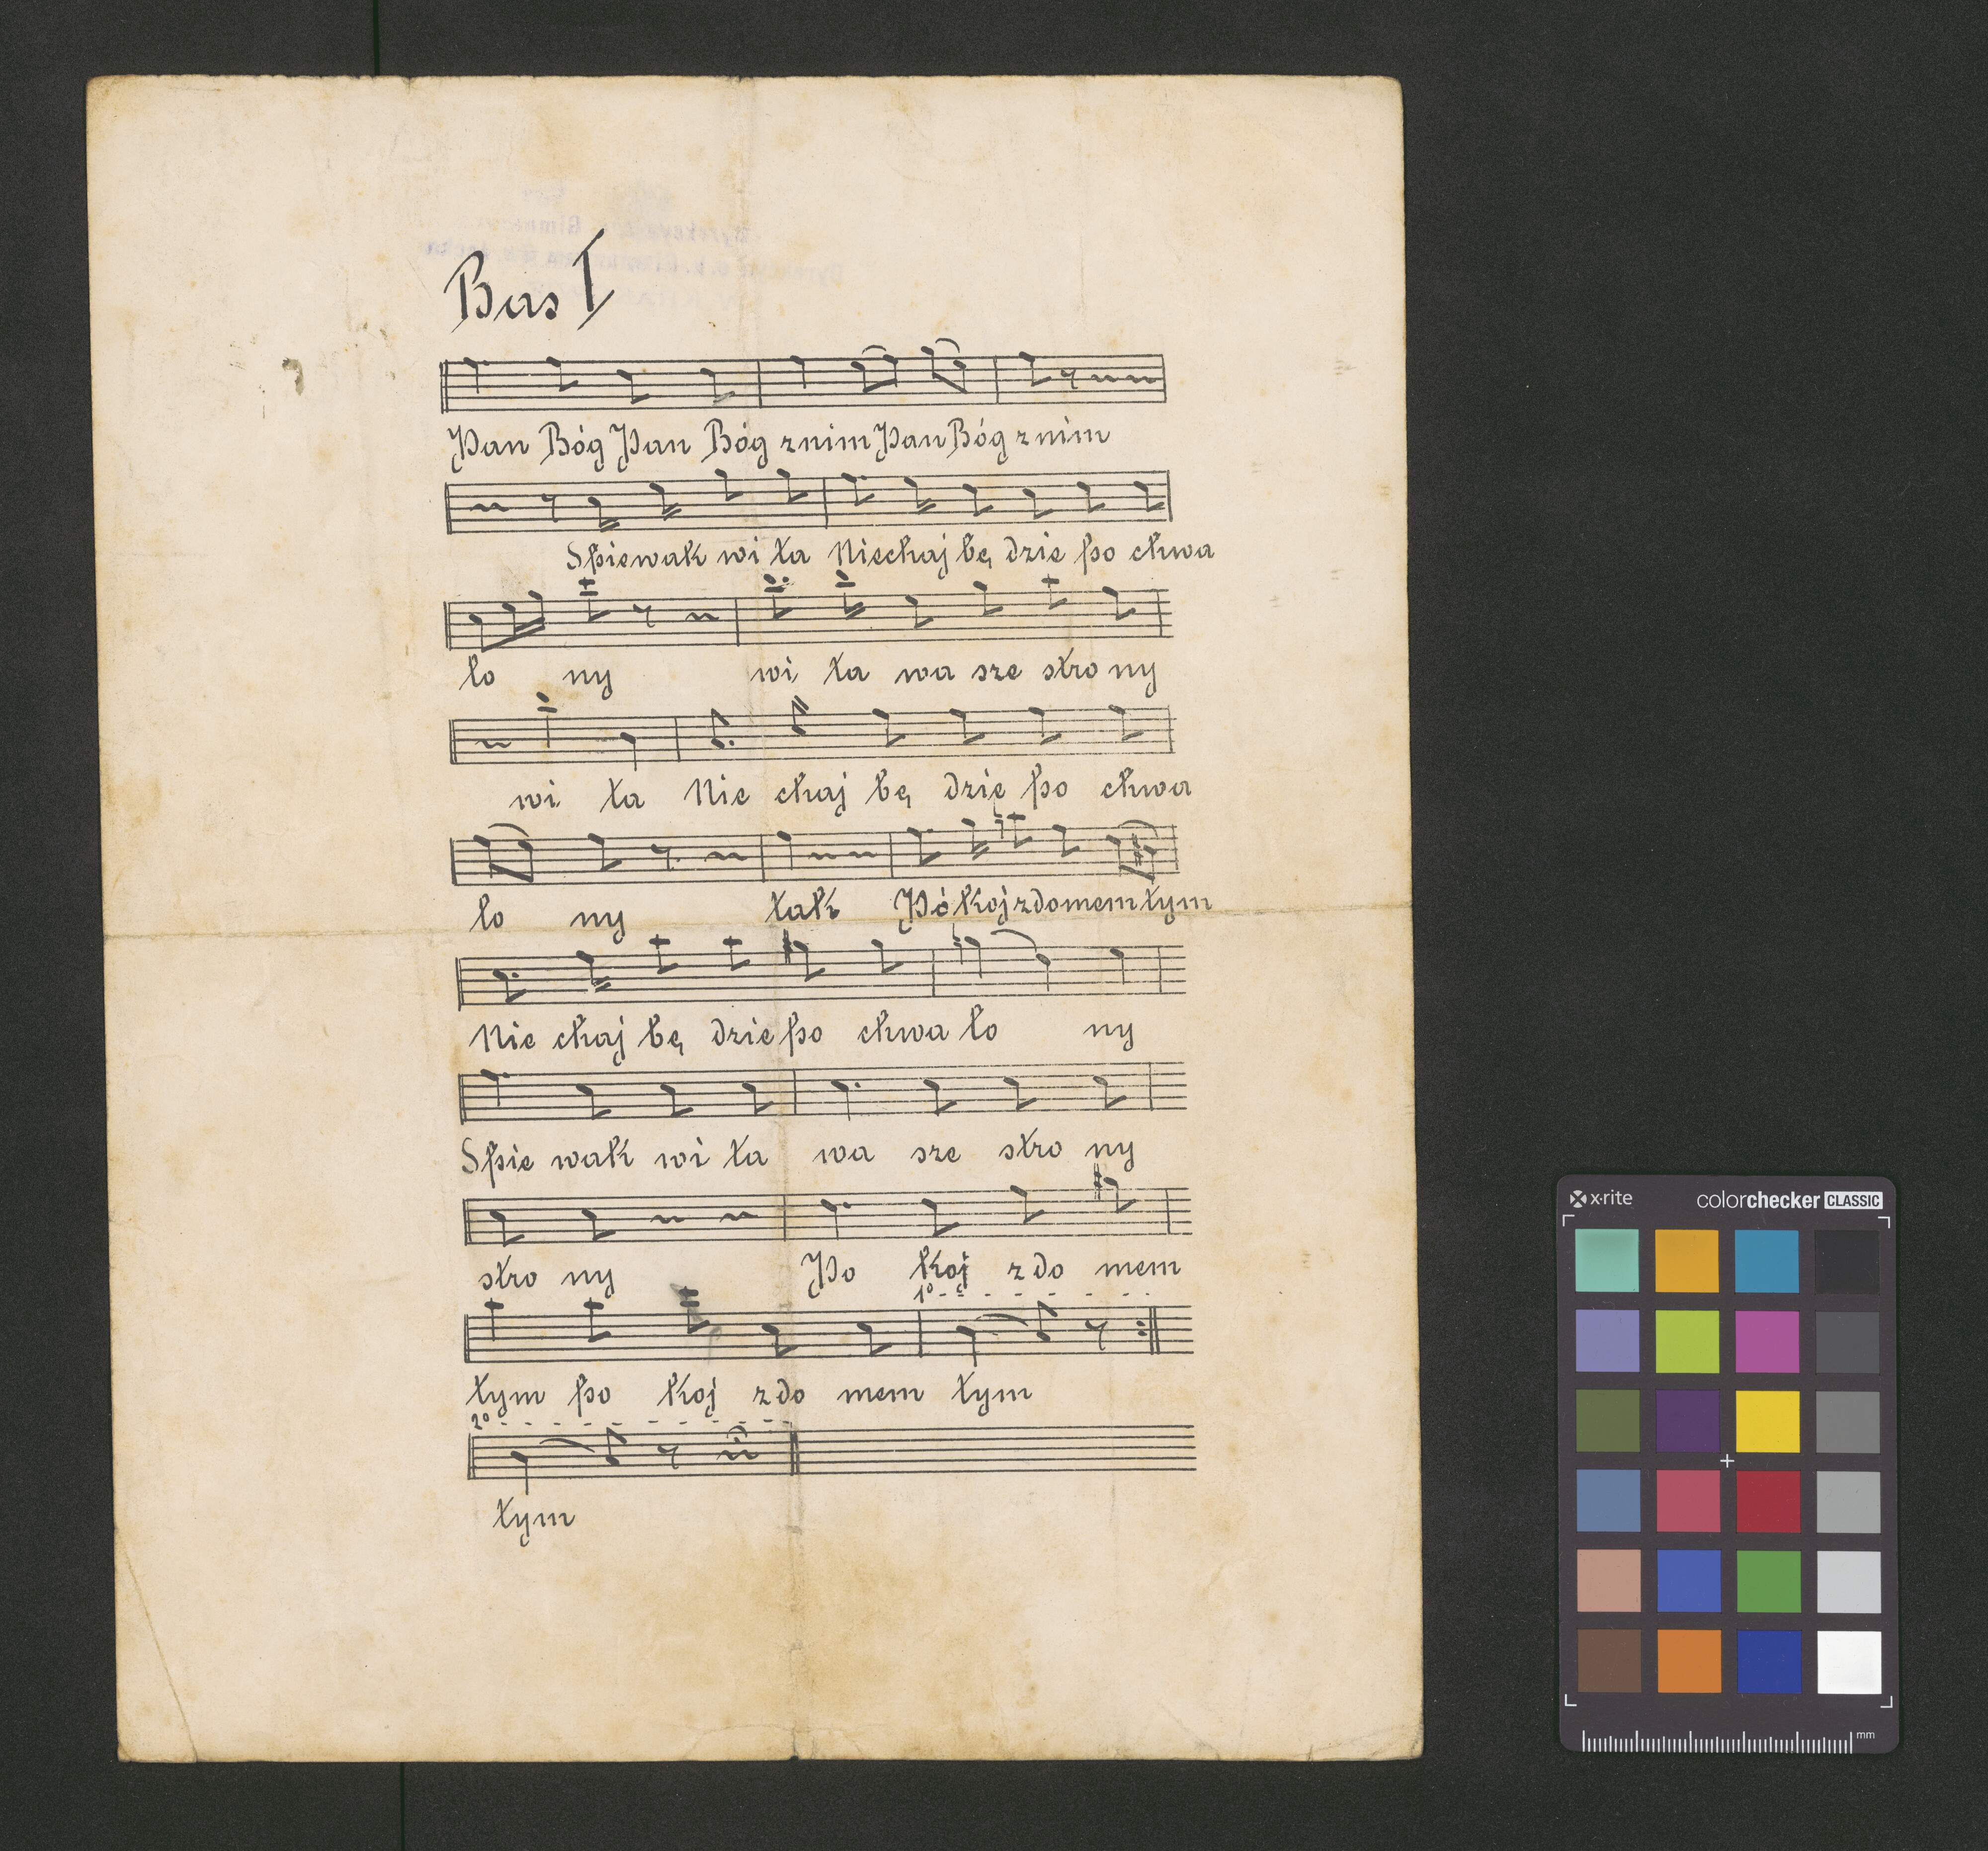 Bas I
Pan Bóg Pan Bóg z nim Pan Bóg z nim
Spiewak wi ta Niechaj bę dzie po chwa
lo ny wi ta wa sze stro ny
wi ta Nie chaj bę dzie po chwa
lo ny tak Pó koj z domem tym
Nie chaj bę dzie po chwa lo ny
Spie wak wi ta wa sze stro ny
stro ny Po koj z do mem
1º
tym po koj z do mem tym
2º
tym
x·rite colorchecker CLASSIC
mm